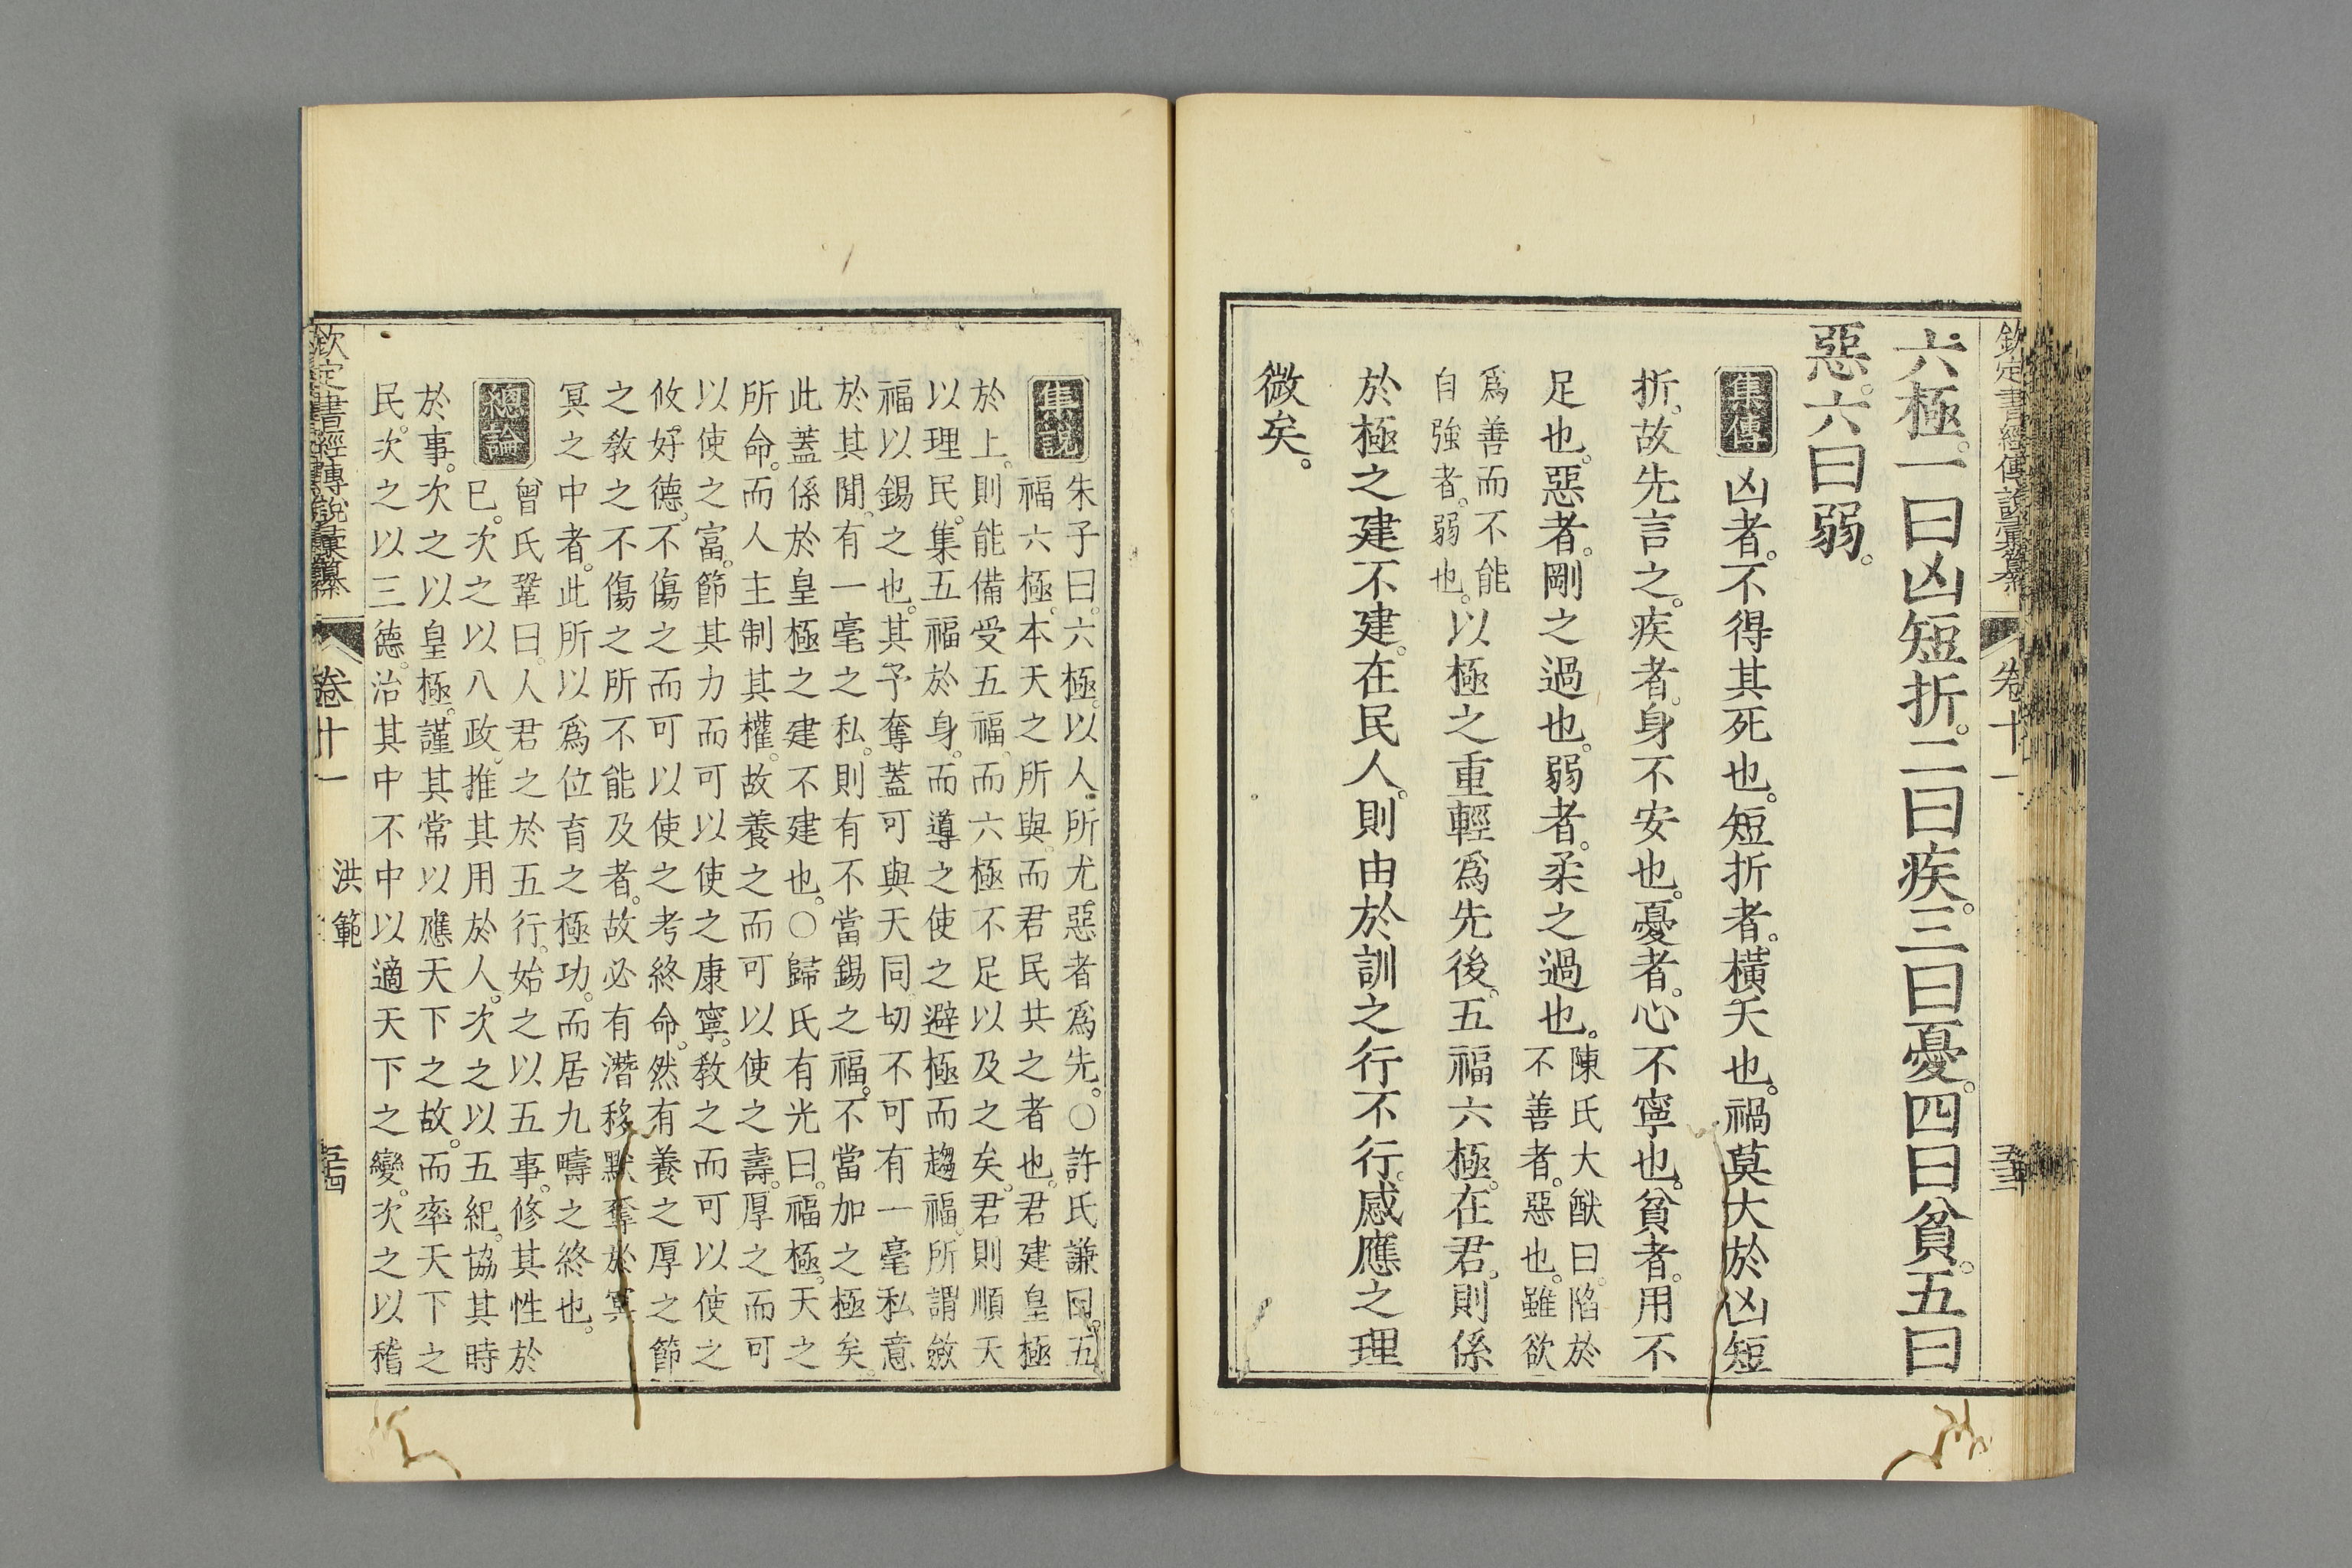 欽定書經傳說彙纂 卷十一
六極。一曰凶短折。二曰疾。三曰憂。四曰貧。五曰
惡。六曰弱。
集傳 凶者。不得其死也。短折者。橫夭也。禍莫大於凶短
折。故先言之。疾者。身不安也。憂者。心不寧也。貧者。用不
足也。惡者。剛之過也。弱者。柔之過也。陳氏大猷曰。陷於
不善者。惡也。雖欲
爲善而不能
自強者。弱也。以極之重輕爲先後。五福六極。在君。則係
於極之建不建。在民人。則由於訓之行不行。感應之理
微矣。
集說 朱子曰。六極。以人所尤惡者爲先。○許氏謙曰。五
福六極。本天之所與。而君民共之者也。君建皇極
於上。則能備受五福。而六極不足以及之矣。君則順天
以理民。集五福於身。而導之使之避極而趨福。所謂斂
福以錫之也。其予奪蓋可與天同。切不可有一毫私意
於其閒。有一毫之私。則有不當錫之福。不當加之極矣。
此蓋係於皇極之建不建也。○歸氏有光曰。福極。天之
所命。而人主制其權。故養之而可以使之壽。厚之而可
以使之富。節其力而可以使之康寧。敎之而可以使之
攸好德。不傷之而可以使之考終命。然有養之厚之節
之敎之不傷之所不能及者。故必有潛移默奪於冥
冥之中者。此所以爲位育之極功。而居九疇之終也。
總論 曾氏鞏曰。人君之於五行。始之以五事。修其性於
己。次之以八政。推其用於人。次之以五紀。協其時
於事。次之以皇極。謹其常以應天下之故。而率天下之
民。次之以三德。治其中不中以適天下之變。次之以稽
欽定書經傳說彙纂 卷十一 洪範 五十四